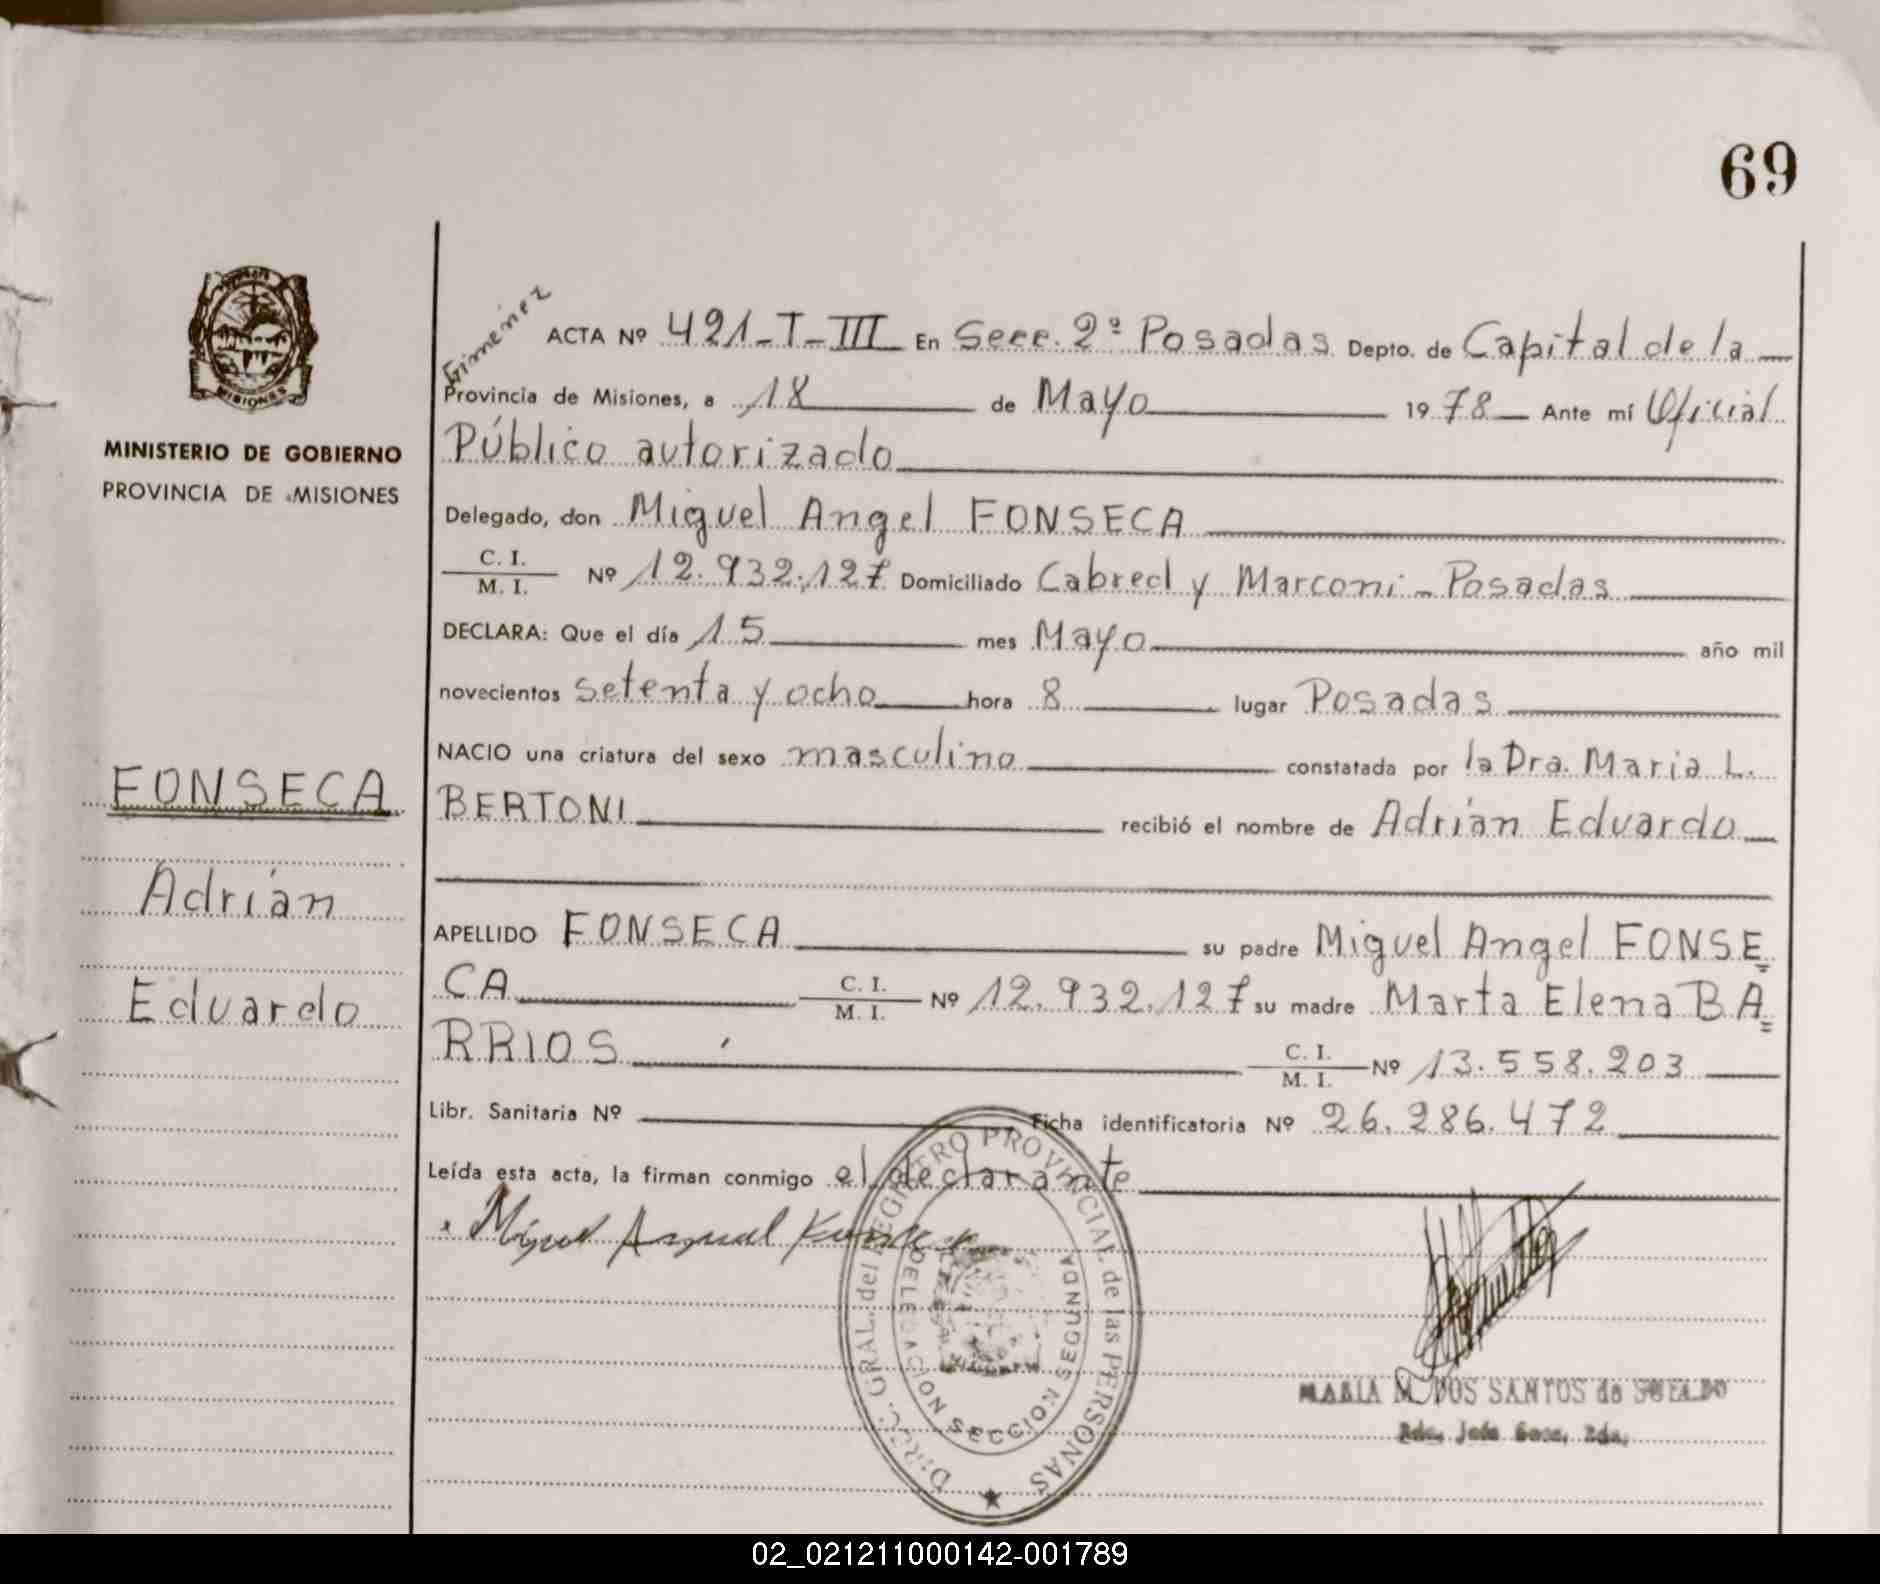 69
MISIONES
MINISTERIO DE GOBIERNO
PROVINCIA DE MISIONES
FONSECA
Adrián
Eduardo
Gimenez
ACTA Nº 421-T-III En Secc. 2ª Posadas Depto. de Capital de la
Provincia de Misiones, a 18 de Mayo 1978 Ante mí Oficial
Público autorizado
Delegado, don Miguel Angel FONSECA
C. I.
M. I. Nº 12.932.127 Domiciliado Cabred y Marconi - Posadas
DECLARA: Que el día 15 mes Mayo año mil
novecientos setenta y ocho hora 8 lugar Posadas
NACIO una criatura del sexo masculino constatada por la Dra. Maria L.
BERTONI recibió el nombre de Adrián Eduardo
APELLIDO FONSECA su padre Miguel Angel FONSE=
CA C. I. M. I. Nº 12.932.127 su madre Marta Elena BA=
RRIOS C. I. M. I. Nº 13.558.203
Libr. Sanitaria Nº Ficha identificatoria Nº 26.286.472
Leída esta acta, la firman conmigo el declarante
Miguel
DIREC. GRAL. del REGISTRO PROVINCIAL de las PERSONAS
DELEGACION SECCION SEGUNDA
MARIA M. DOS SANTOS de SUELDO
02_021211000142-001789